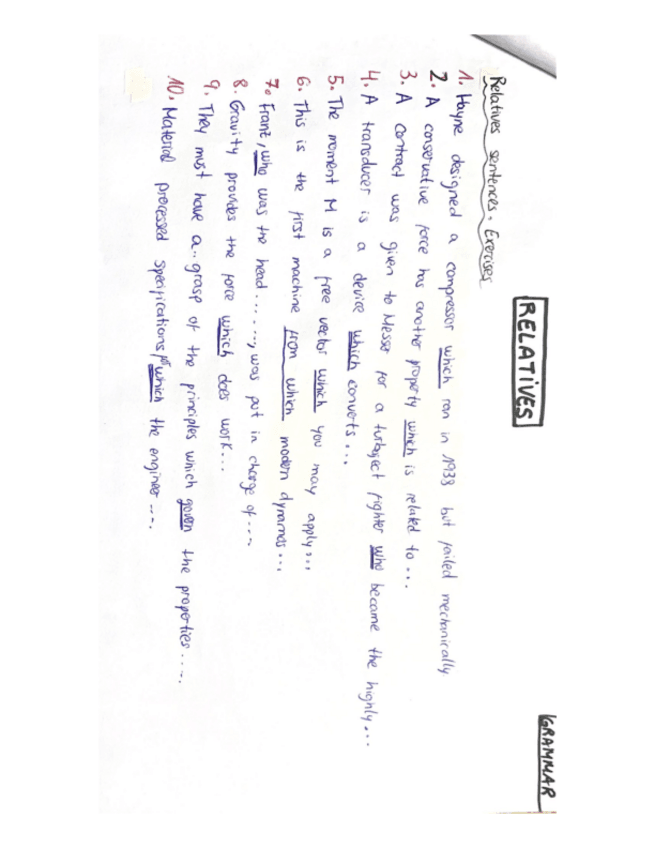 GRAMMAR
RELATIVES
Relatives sentences. Exercises
1. Hayne designed a compressor which ran in 1938 but failed mechanically
2. A conservative force has another property which is related to ...
3. A contract was given to Messer for a turboject fighter who became the highly...
4. A transducer is a device which converts...
5. The moment M is a free vector which you may apply...
6. This is the first machine from which modern dynamos...
7. Franz, who was the head......, was put in charge of ....
8. Gravity provides the force which does work...
9. They must have a.. grasp of the principles which govern the properties.....
10. Material processed specifications, which the engineer ....